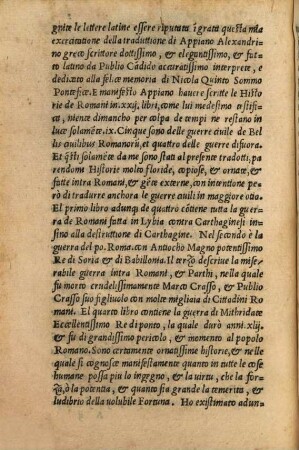 gnite le lettere latine essere riputata ĩ grata questa mia
exercitatione della traduttione di Appiano Alexandri
no greco scrittore dottissimo, & elegantissimo, & fatto
latino da Publio Cãdido accuratissimo interprete, e
dedicato alla felice memoria di Nicola Quinto Sommo
Pontefice. E manifesto Appiano hauere scritte le Histo
rie de Romani in.xxij. libri, come lui medesimo testifi
ca, niente dimancho per colpa de tempi ne restano in
luce solamẽte.ix. Cinque sono delle guerre ciuile de Bel
lis ciuilibus Romanorũ, et quattro delle guerre disuora.
Et q̃sti solamẽte da me sono stati al presente tradotti, pa
rendomi Historie molto floride, copiose, & ornate, &
fatte intra Romani, & gẽte externe, con intentione pe-
rò di tradurre anchora le guerre ciuili in maggiore otio.
El primo libro adunq̃ de quattro cõtiene tutta la guer
ra de Romani fatta in Lybia contra Carthaginesi in-
sino alla destruttione di Carthagine. Nel secondo è la
guerra del po. Roma. con Antiocho Magno potentissimo
Re di Soria & di Babillonia. Il terzo descriue la mise-
rabile guerra intra Romani, & Parthi, nella quale
fu morto crudelissimamente Marco Crasso, & Publio
Crasso suo figliuolo con molte migliaia di Cittadini Ro
mani. El quarto libro contiene la guerra di Mithridate
Eccellentissimo Re di ponto, la quale durò anni.xlij.
& fu di grandissimo pericolo, & momento al popolo
Romano. Sono certamente ornatissime historie, & nelle
quale si cognosce manifestamente quanto in tutte le cose
humane possa piu lo ingegno, & la virtu, che la for-
za, ò la potentia, & quanto sia grande la temerita, &
ludibrio della volubile Fortuna. Ho existimato adun-